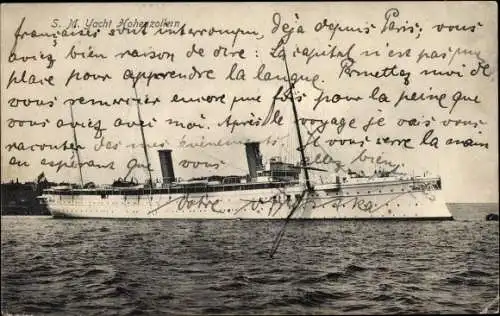 S. M. Yacht Hohenzollern
françaises sont interrompu, déjà depuis Paris, vous
avez bien raison de dire: La capital n'est pas un
place pour apprendre la langue. Permettez moi de
vous remercier encore une fois pour la peine que
vous avez avec moi. Après le voyage je vous
raconter des événements. Je vous serre la main
en espérant que vous allez bien
Votre